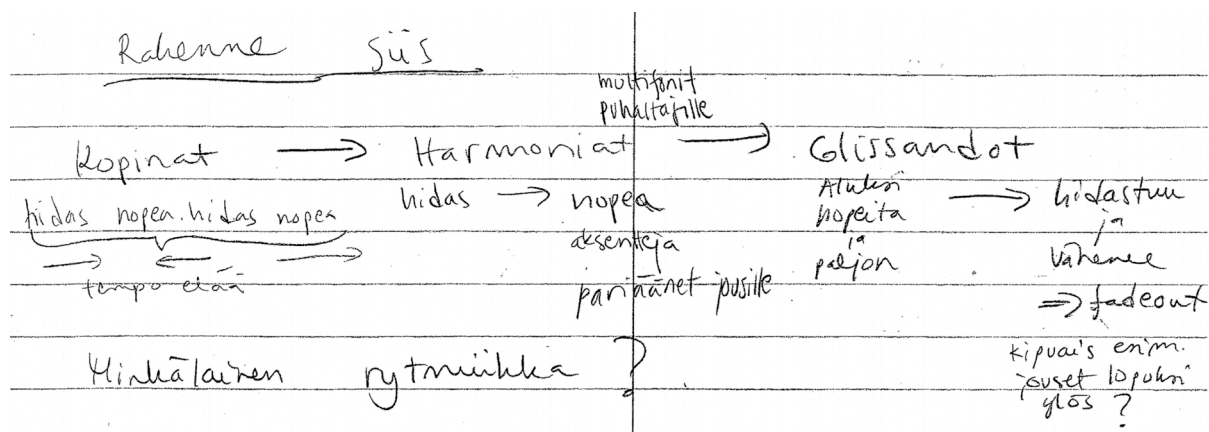 Rakenne siis
multifonit
puhaltajille
Kopinat → Harmoniat → Glissandot
hidas nopea hidas nopea
tempo elää
hidas → nopea
aksentteja
pariäänet jousille
Aluksi
nopeita
ja
paljon
→ hidastuu
ja
vähenee
⇒ fadeout
Minkälainen rytmiikka ?
esim.
jouset lopuksi
ylös ?